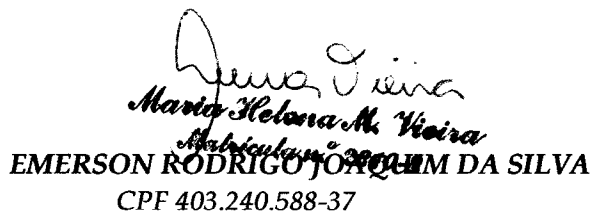 Vieira
Maria Helena M. Vieira
Matrícula nº
EMERSON RODRIGO JOAQUIM DA SILVA
CPF 403.240.588-37